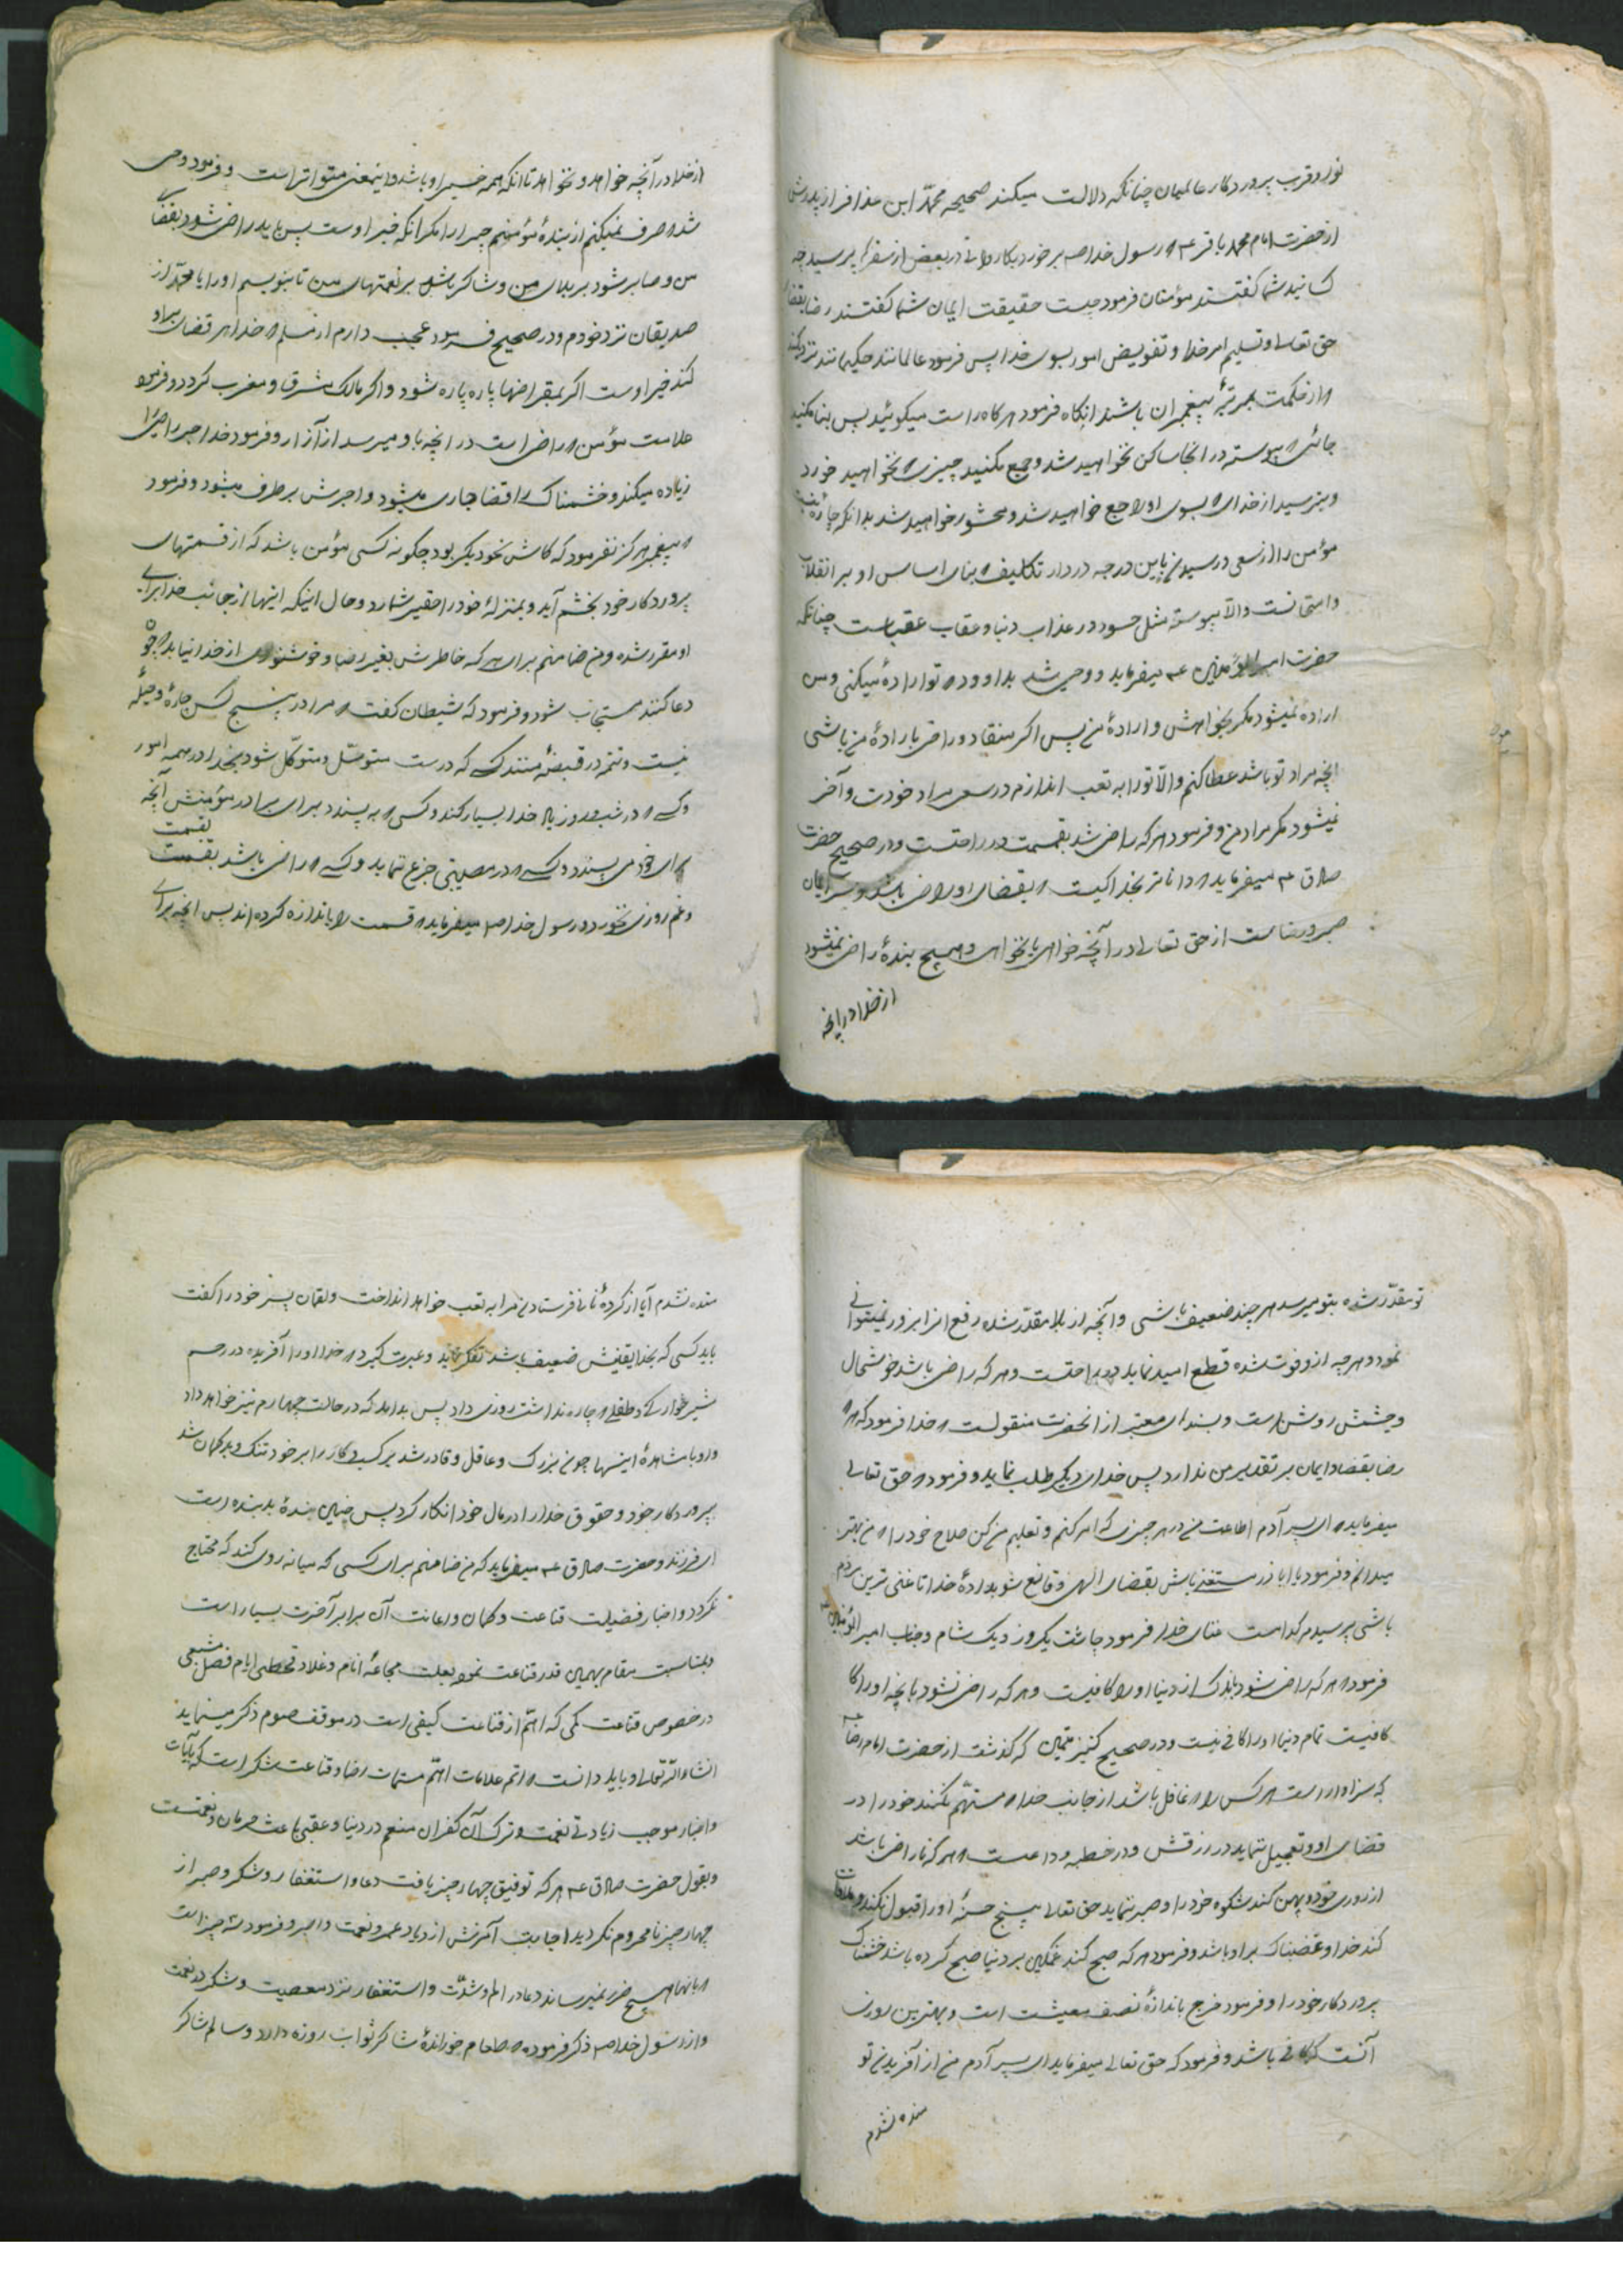 نور و قرب پروردکار عالمیان چنانکه دلالت میکند صحیحه محمّد ابن عذافر از پدرش
از حضرت امام محمد باقر ع که رسول خدا ص برخورد بکاروانی در بعض از سفرها پرسید چه
کسانید شما کفتند مؤمنان فرمود چیست حقیقت ایمان شما کفتند رضا بقضاء
حق تعالی و تسلیم امر خدا و تفویض امور بسوی خدا پس فرمود عالمانند حکیمانند نزدیکند
که از حکمت بمرتبهٔ پیغمبران باشند انکاه فرمود هرکاه راست میکوئید پس بنا مکنید
جائی که پیوسته در انجا ساکن نخواهید شد و جمع مکنید چیزی که نخواهید خورد
و بترسید از خدای که بسوی او راجع خواهید شد و محشور خواهید شد بدانکه چاره نیست
مؤمن را از سعی در رسیدن باین درجه در دار تکالیف که بنای اساس او بر انقلاب
و امتحانست والّا پیوسته مثل حسود در عذاب دنیا و عقاب عقباست چنانکه
حضرت امیر المؤمنین ع میفرماید وحی شد بداوود که تو ارادهٔ میکنی و من
اراده نمیشود مکر بخواهش و ارادهٔ من پس اکر منقاد و راضی بارادهٔ من باشی
انچه مراد تو باشد عطا کنم والّا تو را به تعب اندازم در سعی مراد خودت و آخر
نمیشود مکر مراد من و فرمود هرکه راضی شد بقسمت در راحتست و در صحیح حضرت
صادق ع میفرماید که داناتر بخدا کیست که بقضای او راضی باشد و سر ایمان
صبر و رضاست از حق تعالی در آنچه خواهی یا نخواهی و هیچ بندهٔ راضی نمیشود
از خدا در انچه
از خدا در آنچه خواهد و نخواهد تا انکه همه خیر او باشد و اینمعنی متواتر است و فرمود وحی
شد که صرف نمیکنم از بندهٔ مؤمنم چیزی را مکر انکه خیر اوست پس باید راضی شود بقضای
من و صابر شود بر بلای من و شاکر باشد بر نعمتهای من تا بنویسم او را یا محمّد از
صدیقان نزد خودم و در صحیح فرمود عجب دارم از مسلم که خدا هر قضای براو
کند خیر اوست اکر بمقراضها پاره پاره شود و اکر مالک مشرق و مغرب کردد و فرمود
علامت مؤمن که راضی است در انچه باو میرسد از آزار و فرمود خدا اجر راضی را
زیاده میکند و خشمناک را قضا جاری میشود و اجرش برطرف میشود و فرمود
که پیغمبر هرکز نفرمود که کاش نحو دیکر بود چکونه کسی مؤمن باشد که از قسمتهای
پروردکار خود بخشم آید و بمنزلهٔ خود را حقیر شمارد و حال اینکه اینها از جانب خدا برای
او مقرر شده و من ضامنم برای کسی که خاطرش بغیر رضا و خوشنودی از خدا نیابد که چون
دعا کند مستجاب شود و فرمود که شیطان کفت که مرا در پنج کس چاره و حیلهٔ
نیست و تتمه در قبضهٔ منند کسی که درست متوسّل و متوکّل شود بخدا در همه امور
و کسی که در شب و روز یاد خدا بسیار کند و کسی که به پسندد برای برادر مؤمنش آنچه
برای خود می پسندد و کسی که در مصیبتی جزع ننماید و کسی که راضی باشد بقسمت
و غم روزی نخورد و رسول خدا ص میفرماید که قسمت را باندازه کرده اند پس انچه برای
تو مقدّر شده بتو میرسد هر چند ضعیف باشی و آنچه از بلا مقدّر شده رفع انرا بزور نمیتوانی
نمود و هرچه از و فوت شده قطع امید نماید در راحتست و هر که راضی باشد خوشحال
و چشمش روشن است و بسندهای معتبر از انحضرت منقولست که خدا فرمود که هر که
رضا بقضا و ایمان بر تقدیر من ندارد پس خدای دیکر طلب نماید و فرمود که حق تعالی
میفرماید که ای پسر آدم اطاعت من در هر چیزی که امر کنم و تعلیم من کن صلاح خود را که من بهتر
میدانم و فرمود یا ابا ذر مستغنی باش بقضای الهی و قانع شو بدادهٔ خدا تا غنی ترین مردم
باشی پرسیدم کدامست غنای خدا فرمود چاشت یکروز و یک شام و جناب امیر المؤمنین ع
فرمود که هر که راضی شود باندک از دنیا او را کافیست و هر که راضی نشود بانچه او را کا
کافیست تمام دنیا او را کافی نیست و در صحیح کنیز یتیمین که کذشت از حضرت امام رضا ع
که سزاوار است هر کس را که غافل باشد از جانب خدا که متهّم نکند خود را در
قضای او و تعجیل ننماید در رزقش و در خطبه وداعست که هر که ناراضی باشد
از روزی خود و پهن کند شکوه خود را و صبر ننماید حق تعالی هیچ حسنهٔ او را قبول نکند و ملاقات
کند خدا و غضبناک بر او باشد و فرمود هر که صبح کند غمکین بر دنیا صبح کرده باشد خشمناک
پروردکار خود را و فرمود خرج باندازهٔ نصف معیشت است و بهترین روزی
آنست که کافی باشد و فرمود که حق تعالی میفرماید ای پسر آدم من از آفریدن تو
منده نشدم
منده نشدم آیا از کردهٔ نانی فرستادن مرا به تعب خواهد انداخت و لقمان پسر خود را کفت
باید کسی که بخدا یقینش ضعیف باشد تفکر نماید و عبرت کیرد که خدا او را آفریده در رحم
شیرخوارکی و طفلی که چاره نداشت روزی داد پس بداند که در حالت چهارم نیز خواهد داد
و او با مشاهدهٔ اینها چون بزرک و عاقل و قادر شد بر کسب و کار را بر خود تنک و بدکمان شد
پروردکار خود و حقوق خدا را در مال خود انکار کرد پس چنین بندهٔ بد بنده است
ای فرزند و حضرت صادق ع میفرماید که من ضامنم برای کسی که میانه روی کند که محتاج
نکردد و اخبار فضیلت قناعت و کمان و اعانت آن برابر آخرت بسیار است
و بمناسبت مقام بهمین قدر قناعت نموده بعلت مجاعهٔ انام و غلاء و قحطی ایام فصل مشبعی
در خصوص قناعت کمی که اهمّ از قناعت کیفی است در موقف صوم ذکر مینماید
انشاء الله تعالی و باید دانست که اتم علامات اهمّ متممات رضا و قناعت شکر است که بآیات
و اخبار موجب زیادتی نعمت و ترک آن کفران منعم در دنیا و عقبی باعث حرمان و نقمتست
و بقول حضرت صادق ع هر که توفیق چهار چیز یافت دعا و استغفار و شکر و صبر از
چهار چیز نامحروم نکردید اجابت آمرزش ازدیاد عمر و نعمت و اجر و فرمود سه چیز است
که بانها هیچ ضرر نمیرساند دعا در الم و شدّت و استغفار نزد معصیت و شکر در نعمت
و از رسول خدا ص ذکر فرموده که طعام خورانندهٔ شاکر ثواب روزه دارد و سالم شاکر